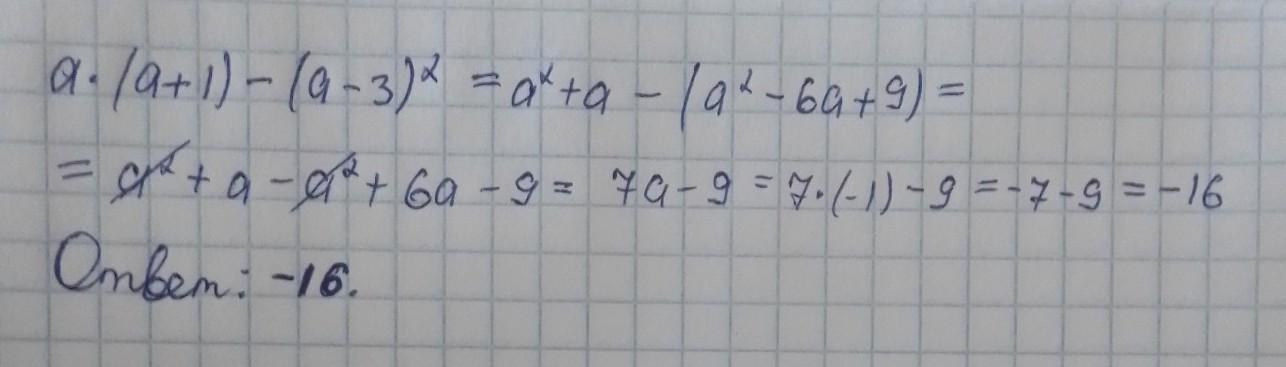 a·(a+1)-(a-3)² = a²+a-(a²-6a+9)=
= a²+a-a²+6a-9= 7a-9 = 7·(-1)-9 = -7-9 = -16
Ответ: -16.